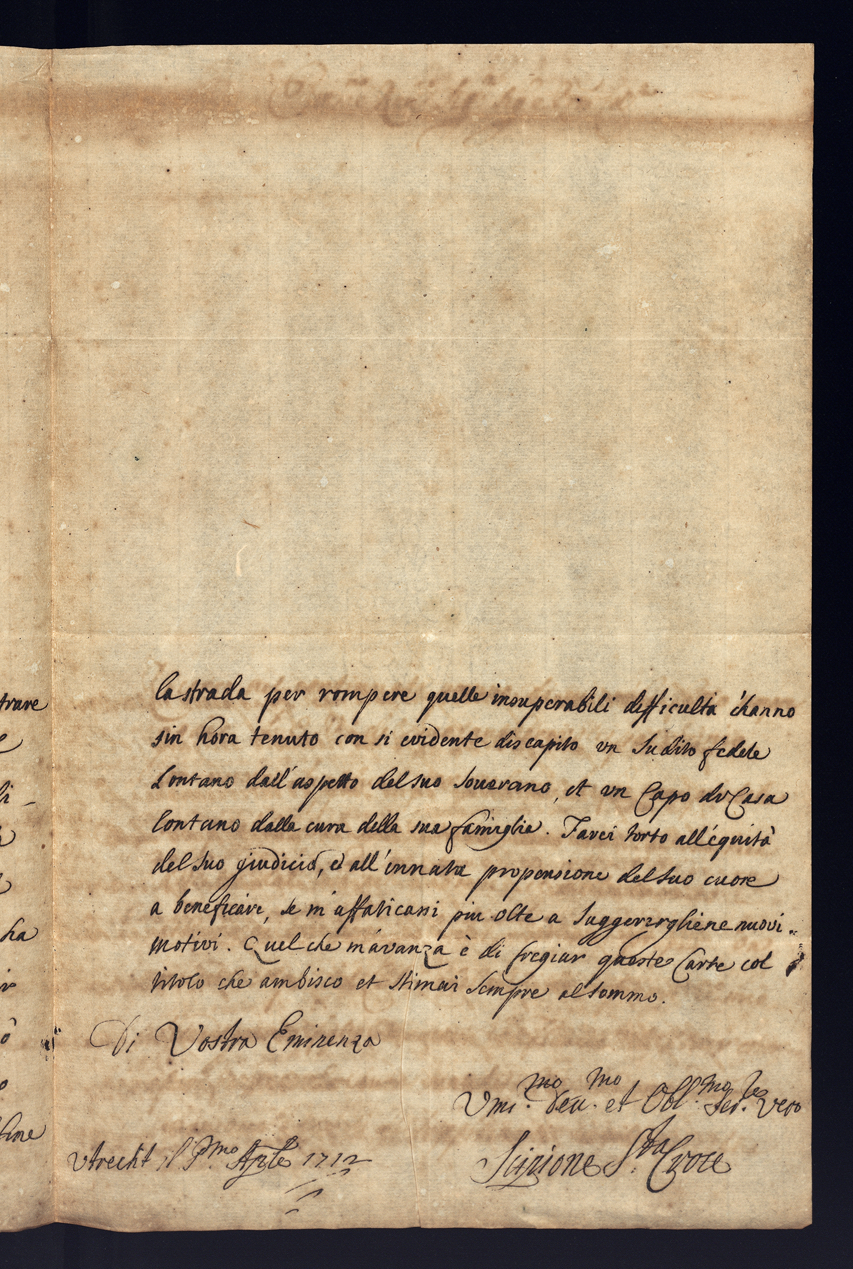 la strada per rompere quelle insuperabili difficultà c'hanno
sin hora tenuto con si evidente discapito vn sudito fedele
Lontano dall'aspetto del suo Souerano, et vn Capo di Casa
lontano dalla cura della sua famiglia. Farei torto all'equità
del suo giudicio, et all'innata propensione del suo cuore
a beneficare, se m'affaticassi piu oltre a suggerirgliene nuovi
motivi. Quel che m'avanza è di fregiar queste Carte col
titolo che ambisco et stimai sempre al sommo.
Di Vostra Eminenza
Vmi.mo Deu.mo et Obl.mo Ser.re vero
Vtrecht il P.mo Aprle 1712
Scipione S.ta Croce
trare
ha
fine